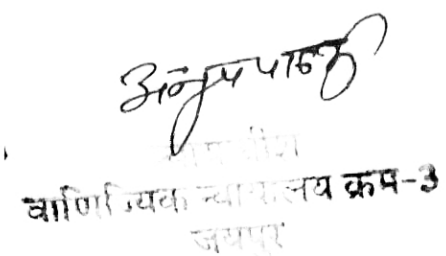 अनूप पाठक
न्यायाधीश
वाणिज्यिक न्यायालय क्रम-3
जयपुर